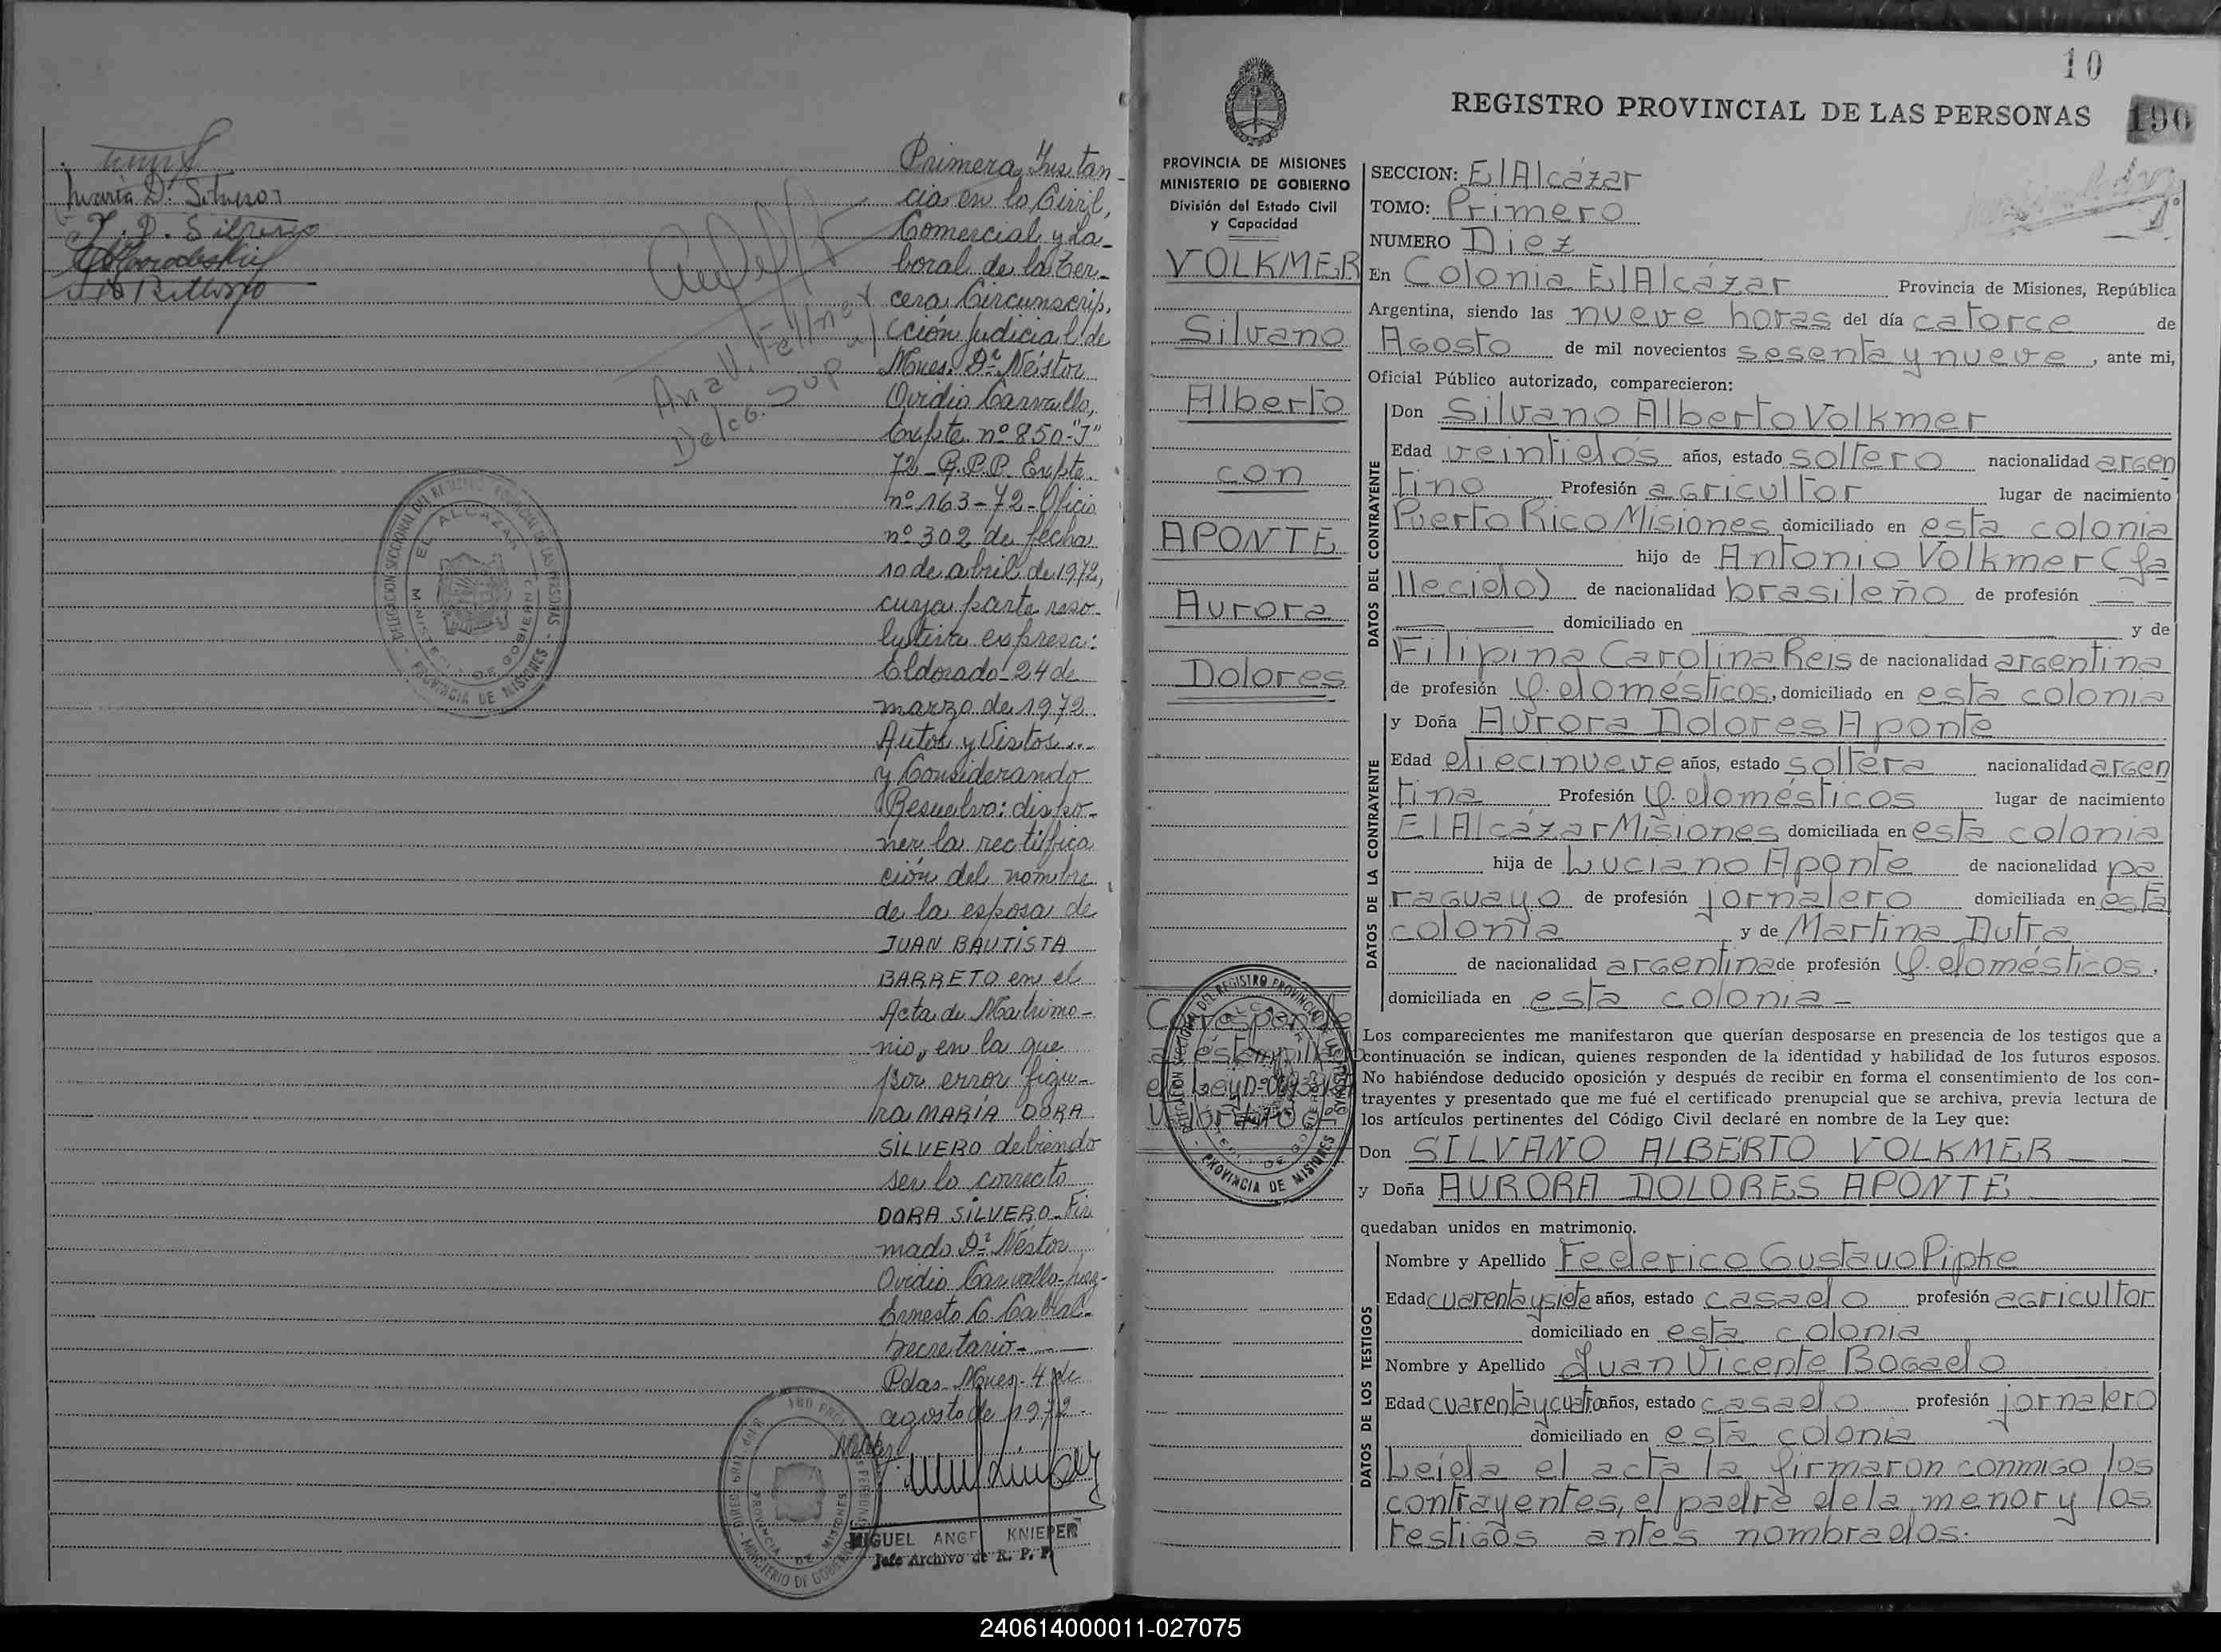 María D. Silvero
J. D. Silvero
Ana V. Fellner
Deleg. Sup.
Primera Instan-
cia en lo Civil,
Comercial y La-
boral de la Ter-
cera Circunscrip.
cción Judicial de
Mnes. Dr. Néstor
Ovidio Carvallo,
Expte. nº 850-"J"
72 - R.P.P. Expte.
nº 163-72-Oficio
nº 302 de fecha
10 de abril de 1972,
cuya parte reso-
lutiva expresa:
Eldorado-24 de
marzo de 1972.
Autos y Vistos...
y Considerando
Resuelvo: dispo-
ner la rectifica
ción del nombre
de la esposa de
JUAN BAUTISTA
BARRETO en el
Acta de Matrimo-
nio, en la que
por error figu-
ra MARÍA DORA
SILVERO debiendo
ser lo correcto
DORA SILVERO-Fir
mado Dr. Néstor
Ovidio Carvallo-Juez-
Ernesto C. Cabral-
Secretario-
Pdas-Mnes-4 de
agosto de 1972-
MIGUEL ANGEL KNIEPER
Jefe Archivo de R. P. P.
DELEGACION SECCIONAL DEL REGISTRO PROVINCIAL DE LAS PERSONAS - PROVINCIA DE MISIONES
EL ALCAZAR
MINISTERIO DE GOBIERNO
10
REGISTRO PROVINCIAL DE LAS PERSONAS
190
PROVINCIA DE MISIONES
MINISTERIO DE GOBIERNO
División del Estado Civil
y Capacidad
VOLKMER
Silvano
Alberto
con
APONTE
Aurora
Dolores
SECCION: El Alcázar
TOMO: Primero
NUMERO Diez
En Colonia El Alcázar Provincia de Misiones, República
Argentina, siendo las nueve horas del día catorce de
Agosto de mil novecientos sesenta y nueve, ante mi,
Oficial Público autorizado, comparecieron:
DATOS DEL CONTRAYENTE
Don Silvano Alberto Volkmer
Edad veintidós años, estado soltero nacionalidad argen
tino Profesión agricultor lugar de nacimiento
Puerto Rico Misiones domiciliado en esta colonia
hijo de Antonio Volkmer (fa
llecido) de nacionalidad brasileño de profesión
domiciliado en y de
Filipina Carolina Reis de nacionalidad argentina
de profesión q. domésticos, domiciliado en esta colonia
DATOS DE LA CONTRAYENTE
y Doña Aurora Dolores Aponte
Edad diecinueve años, estado soltera nacionalidad argen
tina Profesión q. domésticos lugar de nacimiento
El Alcázar Misiones domiciliada en esta colonia
hija de Luciano Aponte de nacionalidad pa
raguayo de profesión jornalero domiciliada en esta
colonia y de Martina Dutra
de nacionalidad argentina de profesión q. domésticos,
domiciliada en esta colonia-
Los comparecientes me manifestaron que querían desposarse en presencia de los testigos que a
continuación se indican, quienes responden de la identidad y habilidad de los futuros esposos.
No habiéndose deducido oposición y después de recibir en forma el consentimiento de los con-
trayentes y presentado que me fué el certificado prenupcial que se archiva, previa lectura de
los artículos pertinentes del Código Civil declaré en nombre de la Ley que:
Don SILVANO ALBERTO VOLKMER
y Doña AURORA DOLORES APONTE
quedaban unidos en matrimonio.
DATOS DE LOS TESTIGOS
Nombre y Apellido Federico Gustavo Pipke
Edad cuarenta y siete años, estado casado profesión agricultor
domiciliado en esta colonia
Nombre y Apellido Juan Vicente Bogado
Edad cuarenta y cuatro años, estado casado profesión jornalero
domiciliado en esta colonia
Leída el acta la firmaron conmigo los
contrayentes, el padre de la menor y los
testigos antes nombrados.
240614000011-027075